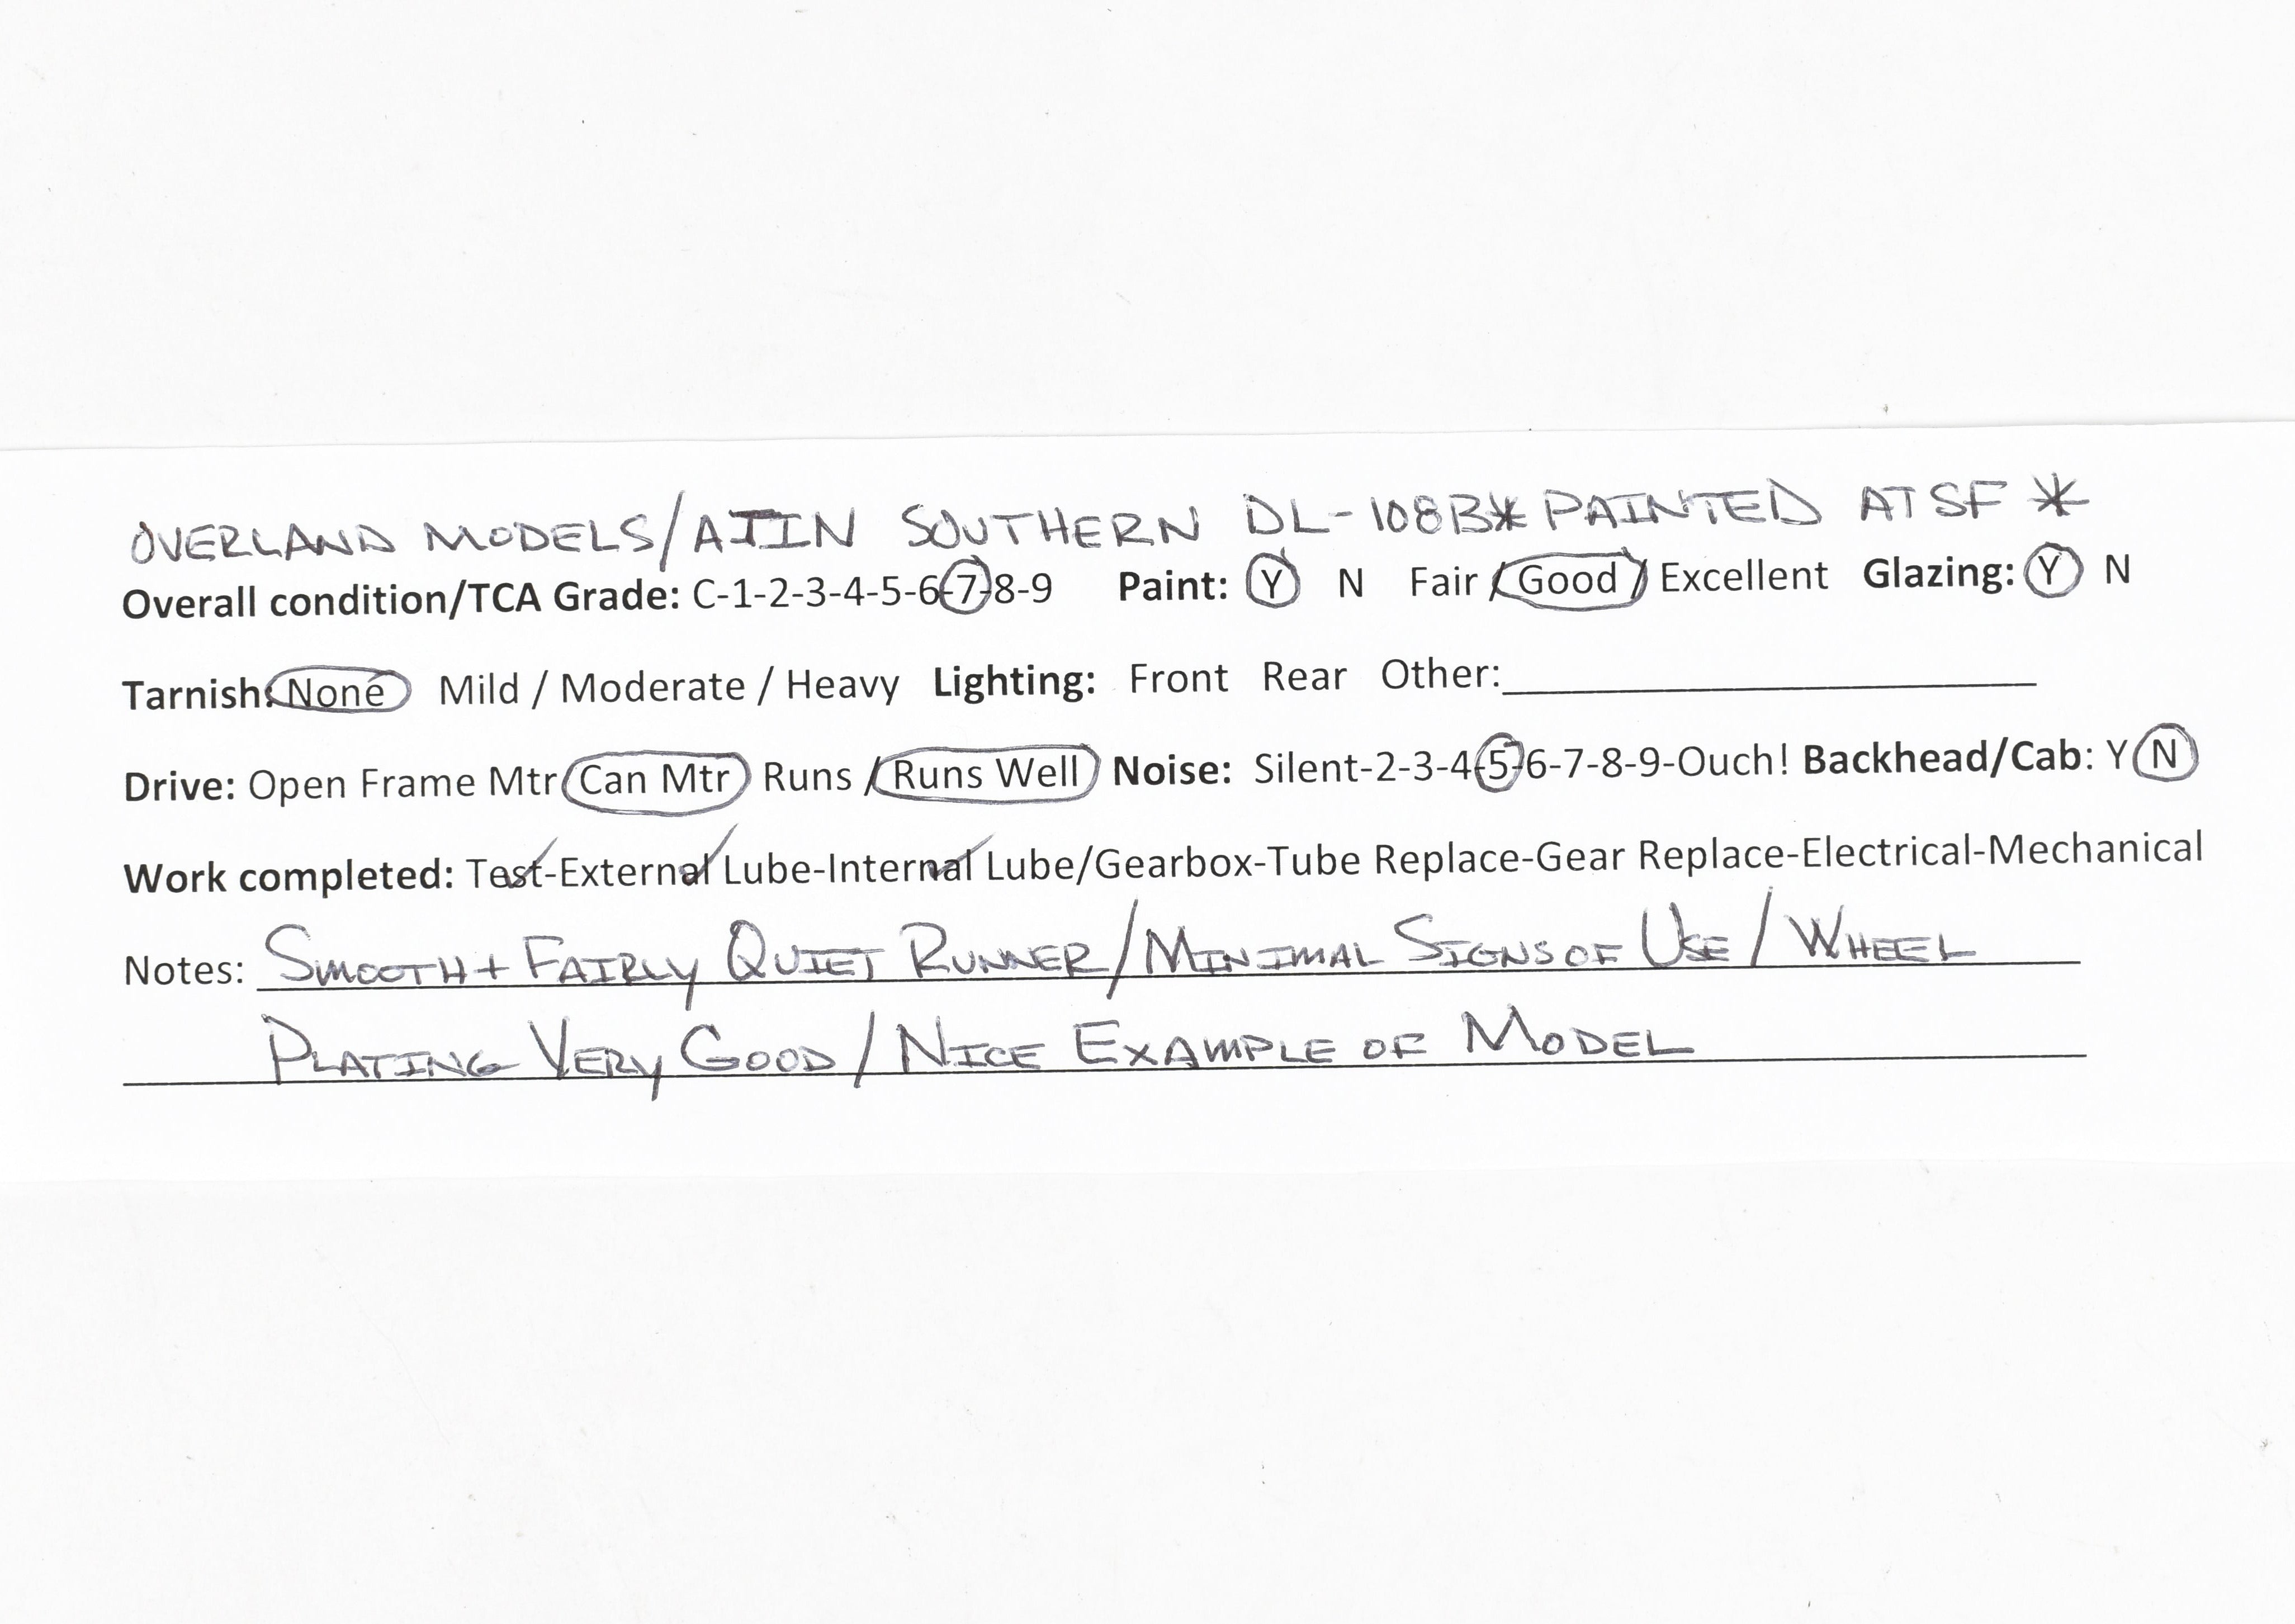 OVERLAND MODELS/AJIN SOUTHERN DL-108B* PAINTED ATSF *
Overall condition/TCA Grade: C-1-2-3-4-5-6-7-8-9 Paint: Y N Fair / Good / Excellent Glazing: Y N
Tarnish: None Mild / Moderate / Heavy Lighting: Front Rear Other:
Drive: Open Frame Mtr Can Mtr Runs / Runs Well Noise: Silent-2-3-4-5-6-7-8-9-Ouch! Backhead/Cab: Y N
Work completed: Test-External Lube-Internal Lube/Gearbox-Tube Replace-Gear Replace-Electrical-Mechanical
Notes: SMOOTH + FAIRLY QUIET RUNNER/MINIMAL SIGNS OF USE/WHEEL
PLATING VERY GOOD/NICE EXAMPLE OF MODEL